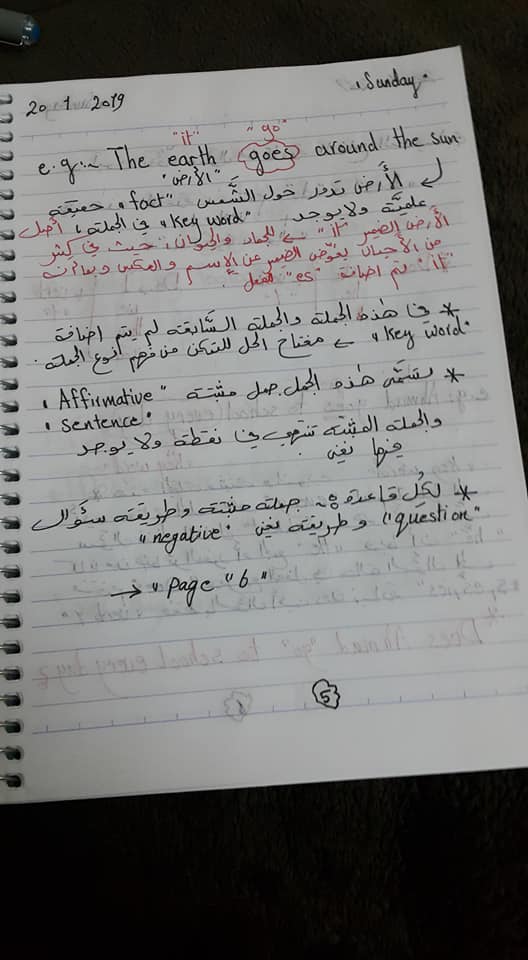 20 1 2019
Sunday.
"it" "go"
e.g:~ The earth goes around the sun
"الأرض"
الأرض تدور حول الشَّمس "fact" حقيقة
علميَّة ولا يوجد "Key word" في الجملة، أصل
الأرض الضمير "it" للجماد والحيوان، حيث في كثير
من الأحيان يعوّض الضمير عن الإسم والعكس وبما أنه
"it" تم اضافة "es" للفعل.
* في هذه الجملة والجملة السَّابقة لم يتم اضافة
"Key word" مفتاح الحل للتمكن من فهم نوع الجملة.
* تسمَّى هذه الجمل جمل مثبتة "Affirmative
sentence"
والجملة المثبتة تنتهي في نقطة ولا يوجد
فيها نفي.
* لكُل قاعدة ~: جملة مثبتة وطريقة سؤال
"question" وطريقة نفي "negative"
→ "Page "6"
5